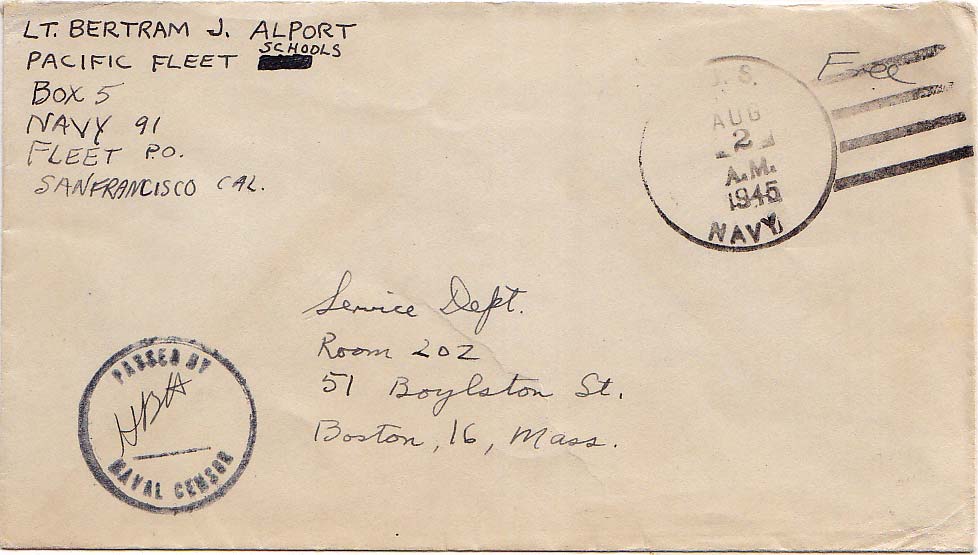 LT. BERTRAM J. ALPORT
SCHOOLS
PACIFIC FLEET
BOX 5
NAVY 91
FLEET P.O.
SANFRANCISCO CAL.
Free
U.S.
AUG
2
A.M.
1945
NAVY
Service Dept.
Room 202
51 Boylston St.
Boston, 16, Mass.
PASSED BY
HBH
NAVAL CENSOR